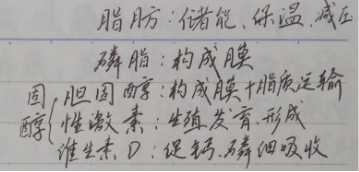 脂肪：储能、保温、减压
磷脂：构成膜
固醇{胆固醇：构成膜+脂质运输
性激素：生殖发育、形成
维生素D：促钙、磷的吸收